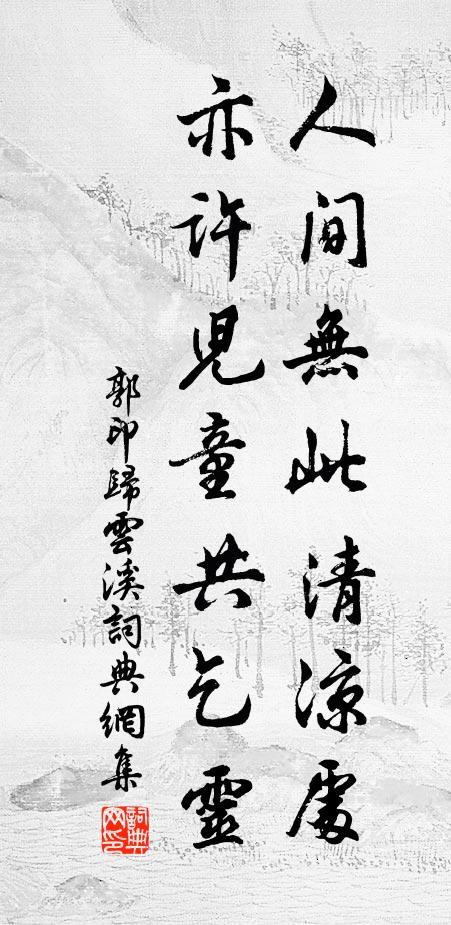 人間無此清涼處
亦許兒童共乞靈
郭印歸雲溪詞典網集
詞典
网印